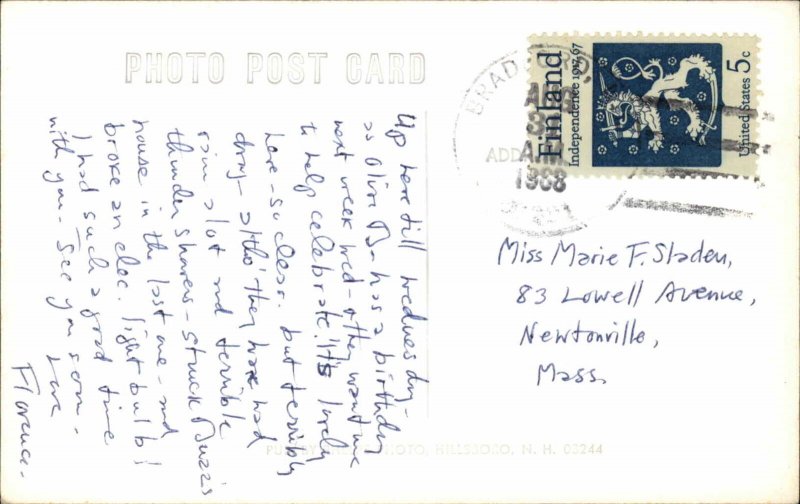 PHOTO POST CARD
Up here till Wednesday-
as Olive B- has a birthday
next week Wed - & they want me
to help celebrate! It's lovely
here - so clear. but terribly
dry - altho' they have had
rain a lot and terrible
thunder showers - struck Buzz's
house in the last one - and
broke an elec. light bulb!
I had such a good time
with you - See you soon -
Love
Florence -
BRADFORD,
AUG
3
AM
1968
ADD
Finland
Independence 1917-67
United States 5c
Miss Marie F. Sladen,
83 Lowell Avenue,
Newtonville,
Mass.
PHOTO, HILLSBORO, N. H. 03244